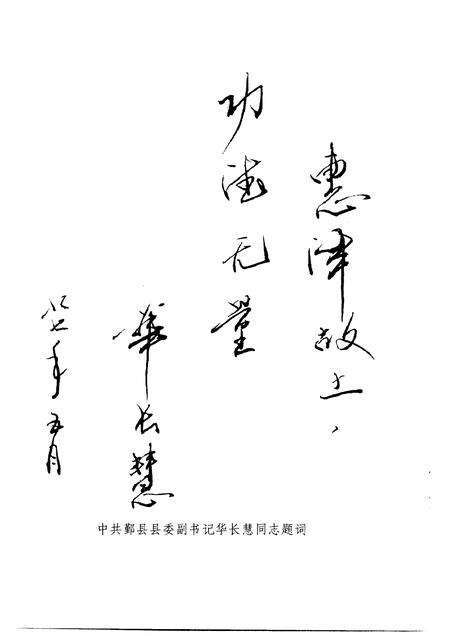 惠泽故土，
功德无量
华长慧
八七年五月
中共鄞县县委副书记华长慧同志题词